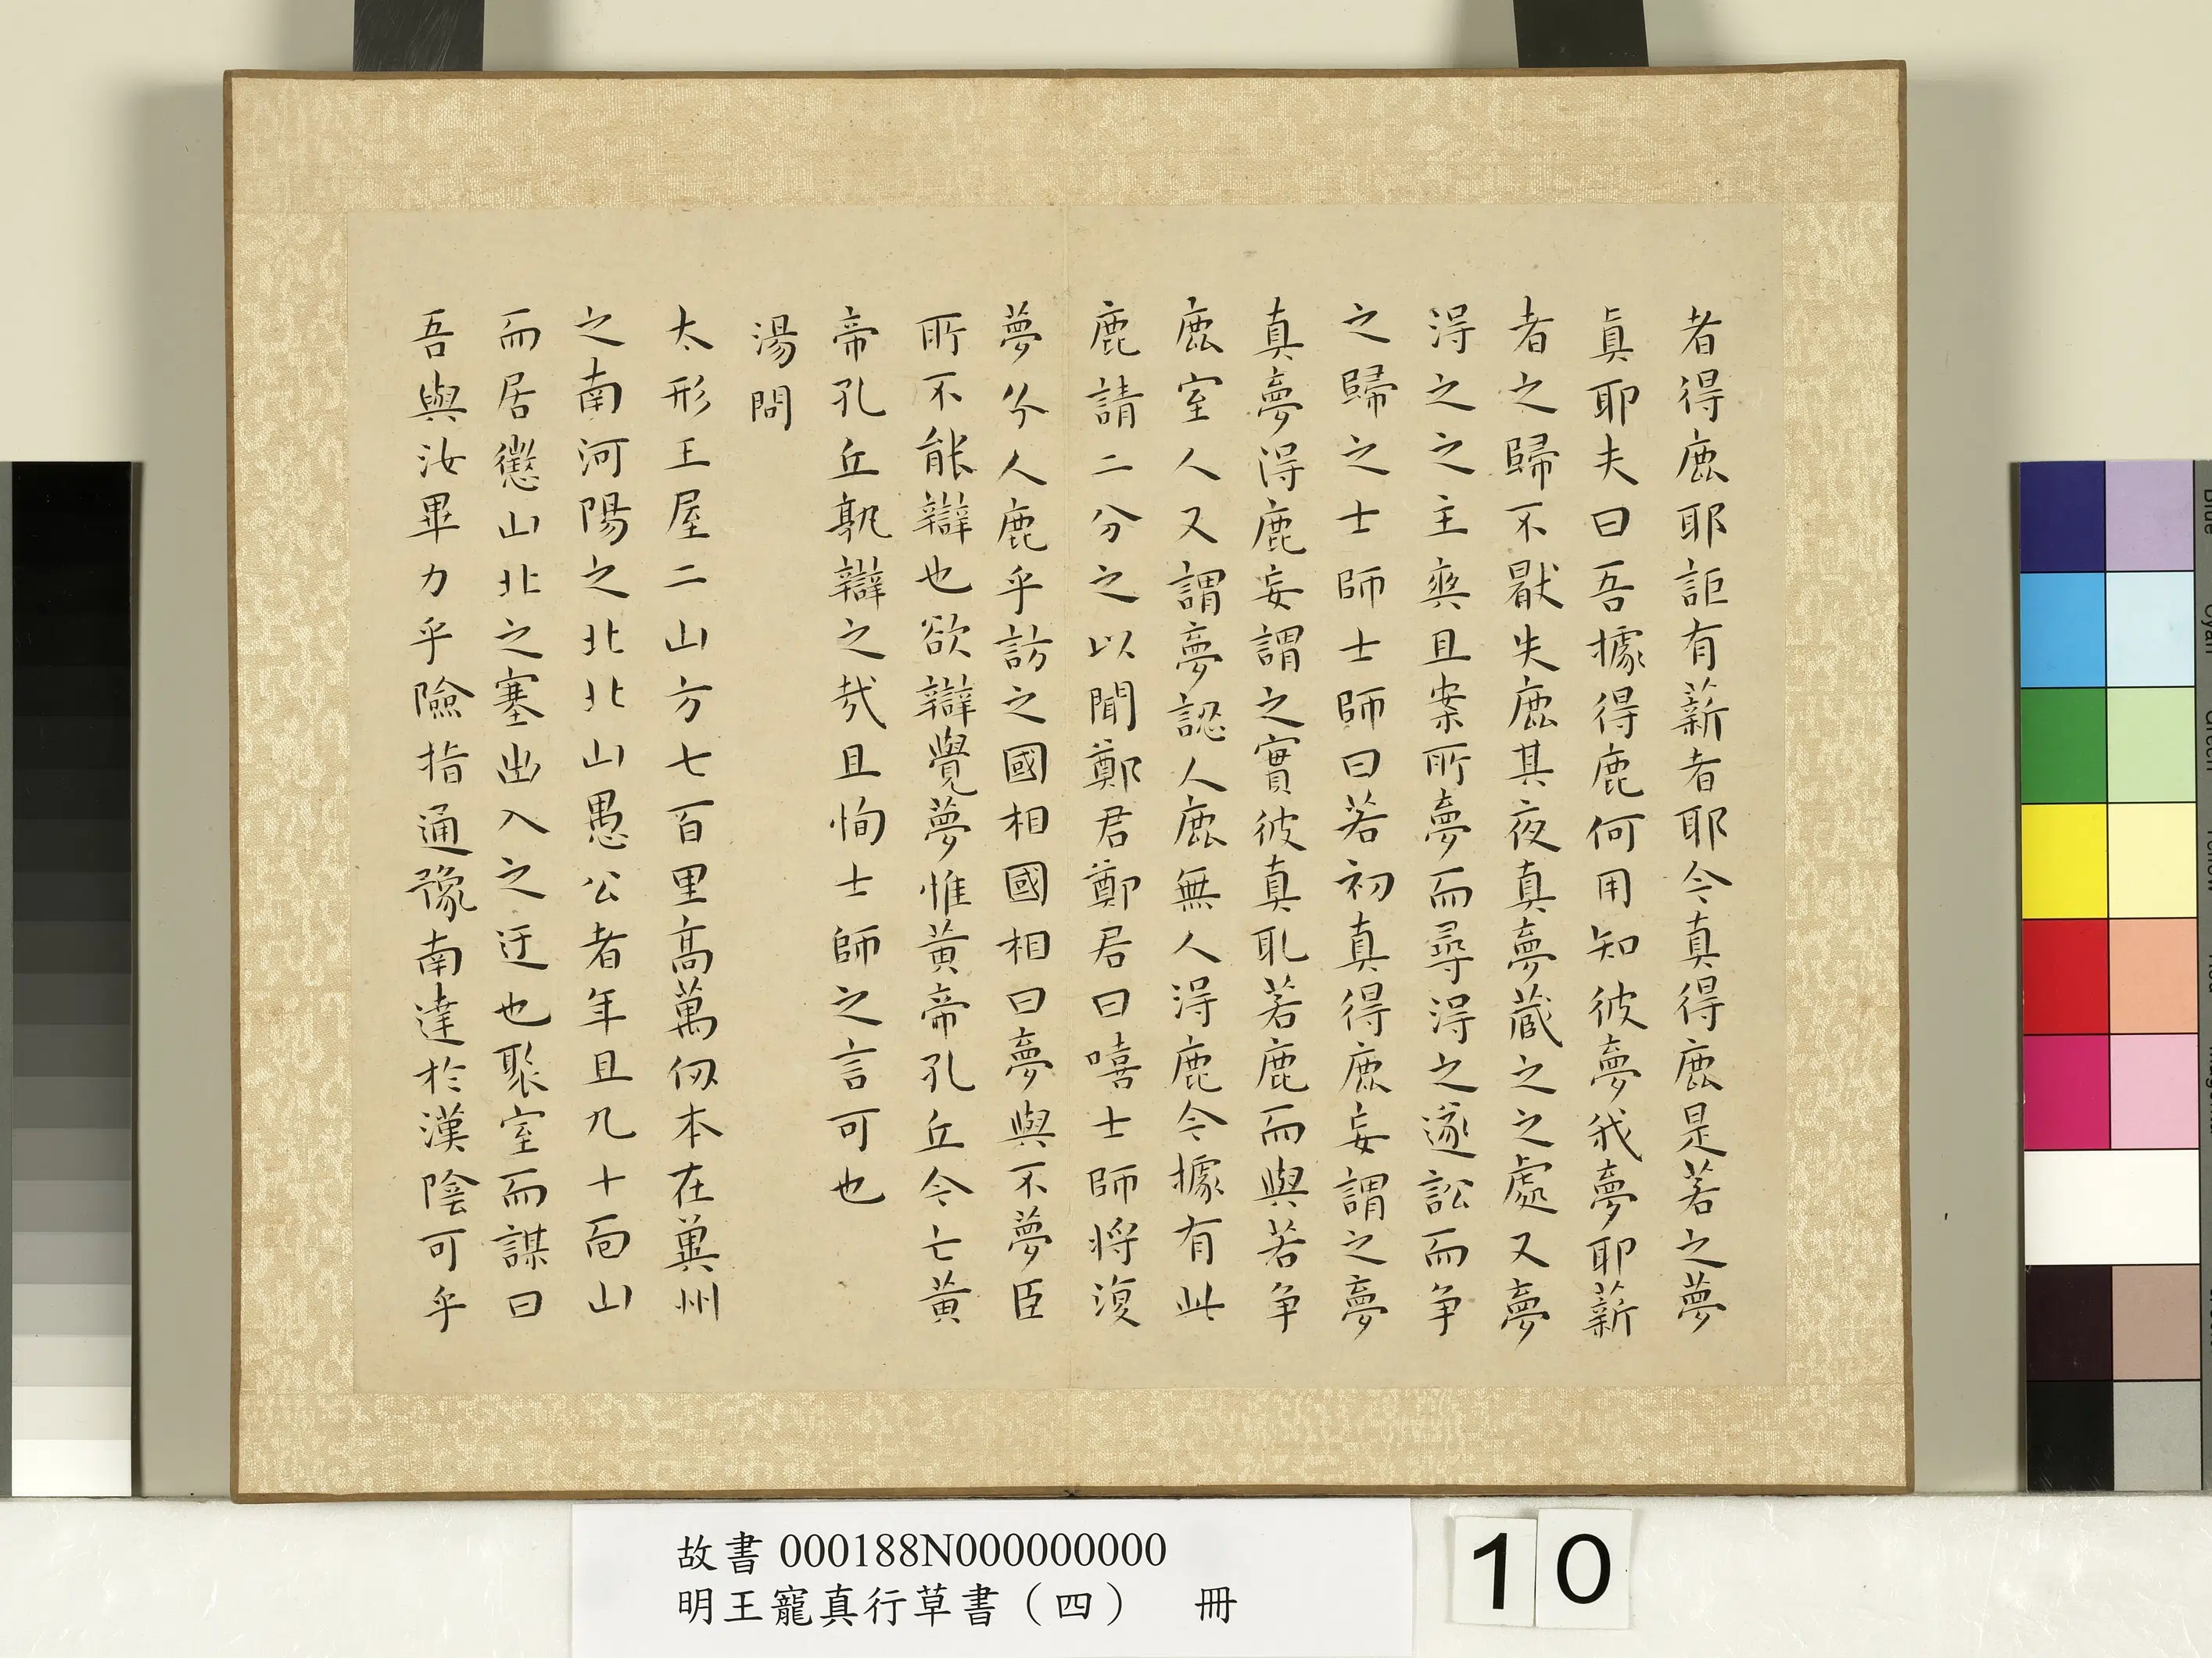 者得鹿耶詎有薪者耶今真得鹿是若之夢
真耶夫曰吾據得鹿何用知彼夢我夢耶薪
者之歸不厭失鹿其夜真夢藏之之處又夢
得之之主爽旦案所夢而尋得之遂訟而爭
之歸之士師士師曰若初真得鹿妄謂之夢
真夢得鹿妄謂之實彼真取若鹿而與若爭
鹿室人又謂夢認人鹿無人得鹿今據有此
鹿請二分之以聞鄭君鄭君曰嘻士師將復
夢分人鹿乎訪之國相國相曰夢與不夢臣
所不能辯也欲辯覺夢惟黃帝孔丘今亡黃
帝孔丘孰辯之哉且恂士師之言可也
湯問
太形王屋二山方七百里高萬仞本在冀州
之南河陽之北北山愚公者年且九十面山
而居懲山北之塞出入之迂也聚室而謀曰
吾與汝畢力平險指通豫南達於漢陰可乎
故書000188N000000000
明王寵真行草書（四） 冊
10